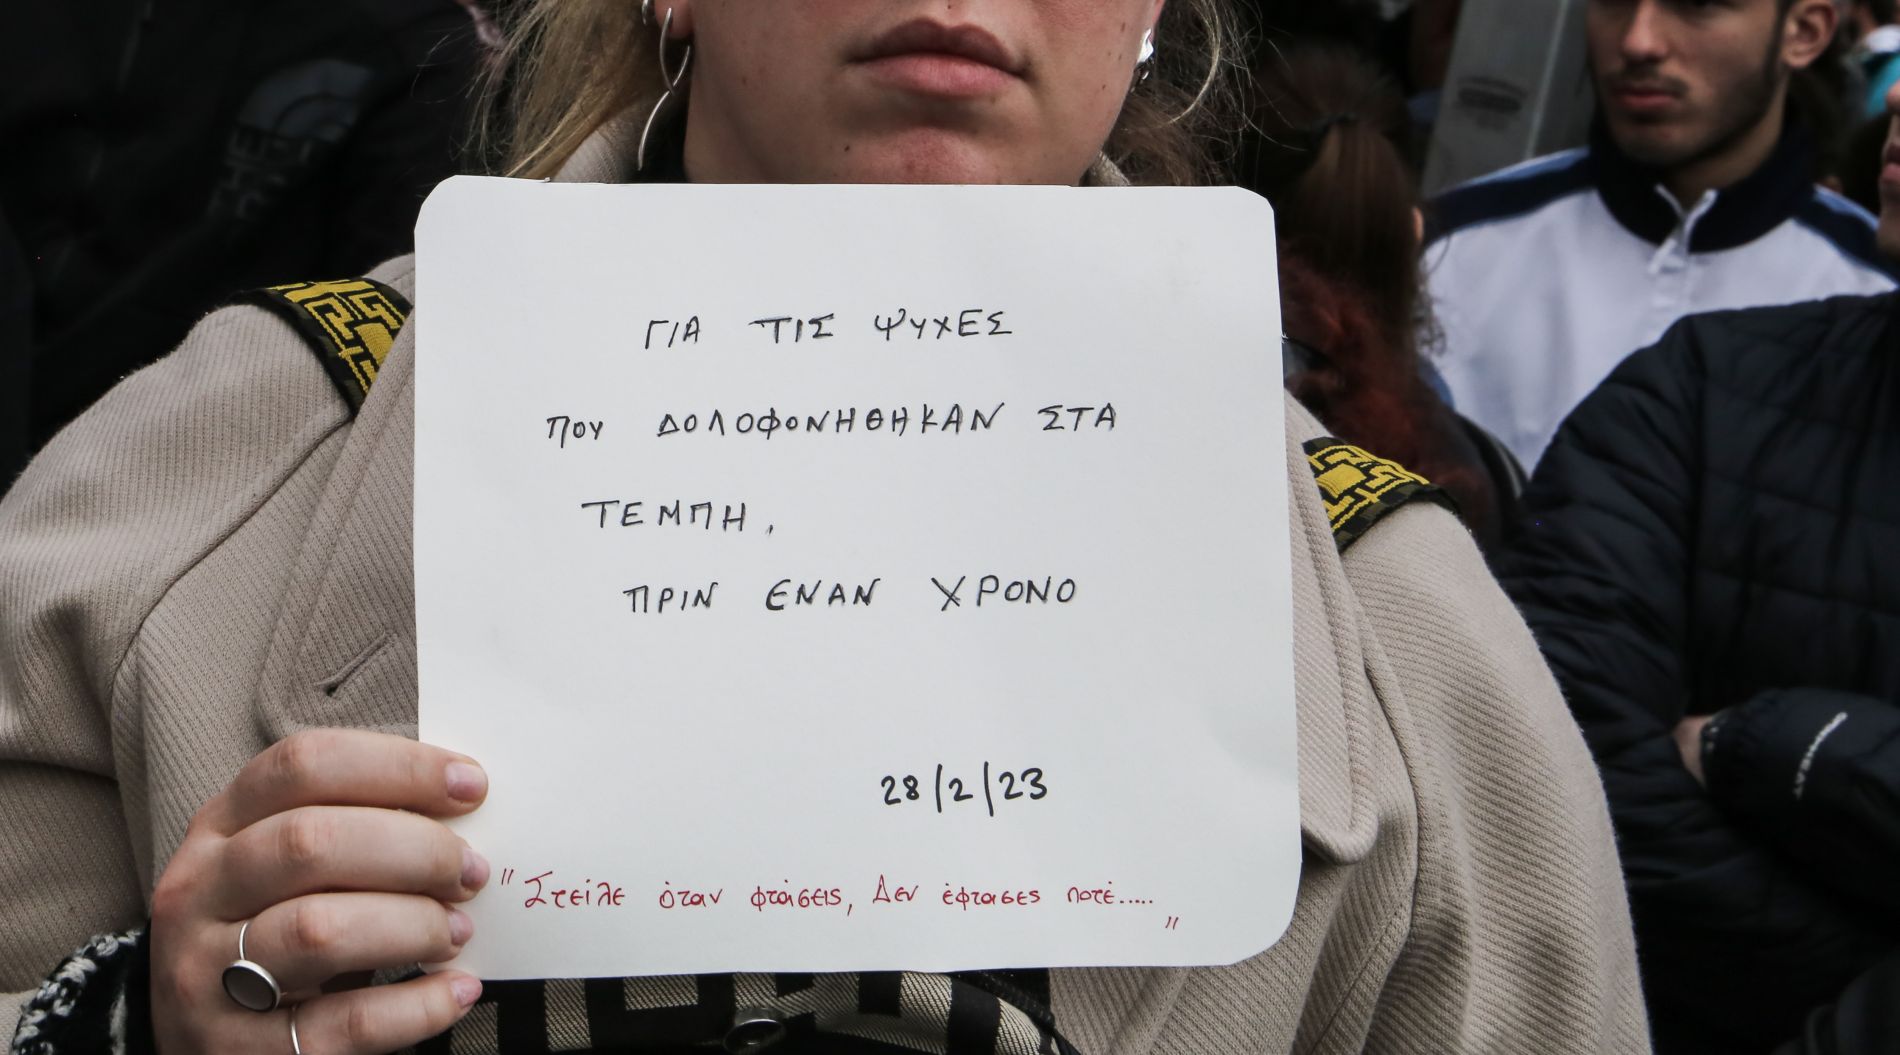 ΓΙΑ ΤΙΣ ΨΥΧΕΣ
ΠΟΥ ΔΟΛΟΦΟΝΗΘΗΚΑΝ ΣΤΑ
ΤΕΜΠΗ,
ΠΡΙΝ ΕΝΑΝ ΧΡΟΝΟ
28/2/23
"Στείλε όταν φτάσεις, Δεν έφτασες ποτέ....."